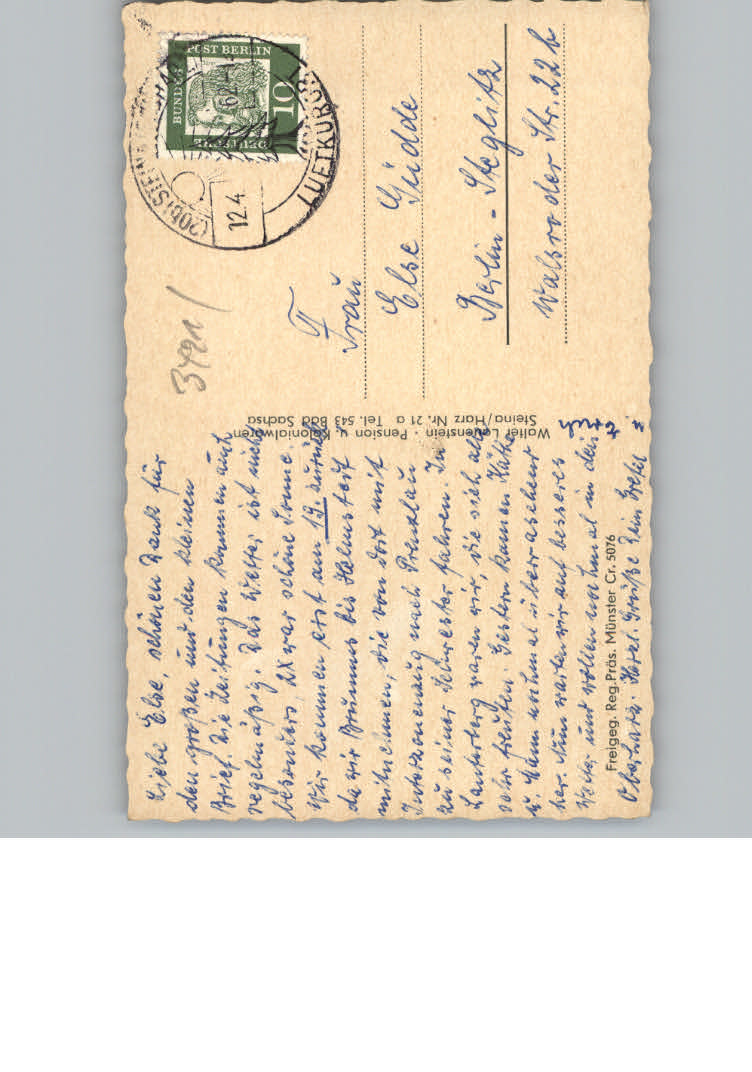 Liebe Else, schönen Dank für
den großen und den kleinen
Brief. Die Zeitungen kommen auch
regelmäßig. Das Wetter ist nicht
besonders, 2x war schöne Sonne.
Wir kommen erst am 19. zurück
da wir Brummes bis Helmstedt
mitnehmen, die von dort mit
Interzonenzug nach Prenzlau
zu seiner Schwester fahren. In
Lauterberg waren wir, die sich alle
sehr freuten. Gestern kamen Käthe
u. Mann nochmal überraschend
her. Nun warten wir auf besseres
Wetter und wollen nochmal in den
Oberharz. Herzl. Grüße Dein Gretel
Freigeg. Reg.Präs. Münster Cr. 5076
Walter Lauenstein · Pension u. Kolonialwaren
Steina/Harz Nr. 21 a Tel. 543 Bad Sachsa
3421/
DEUTSCHE
BUNDESPOST BERLIN
10
(20b) STEINA
12.4
62
LUFTKURORT
Frau
Else Güdde
Berlin - Steglitz
Walsroder Str. 22b